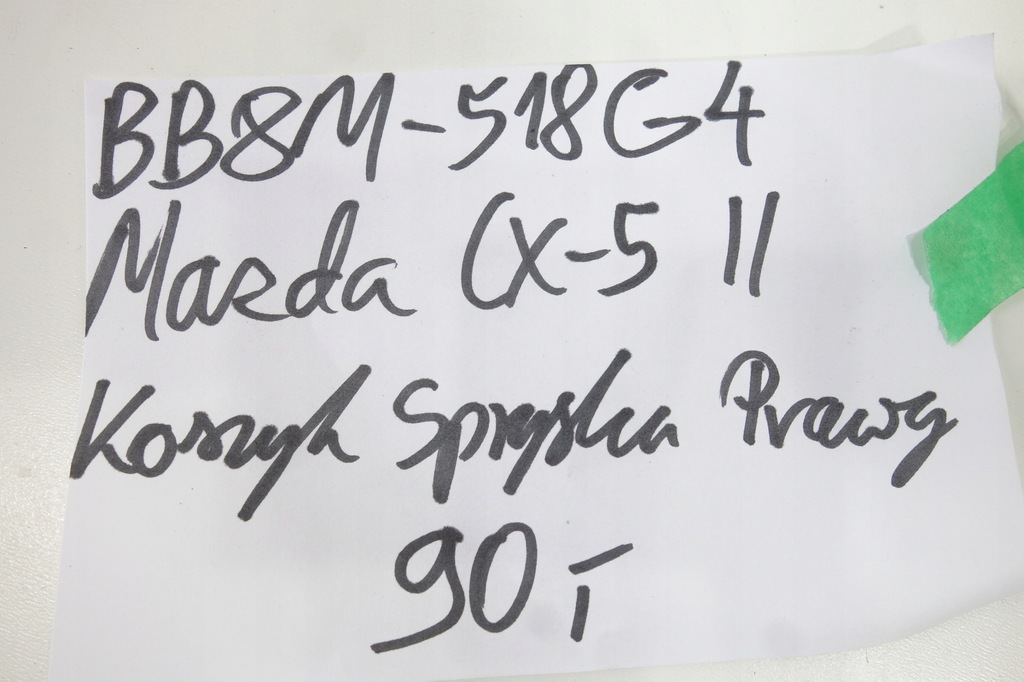 BB8M-518G4
Mazda CX-5 II
Koszyk Spryska Prawy
90,-